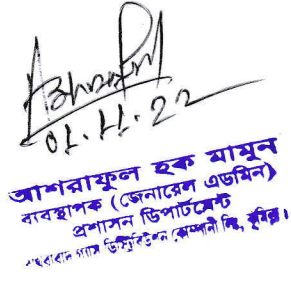 Ashraful
01.11.22
আশরাফুল হক মামুন
ব্যবস্থাপক (জেনারেল এডমিন)
প্রশাসন ডিপার্টমেন্ট
গ্যাস ডিস্ট্রিবিউশন কোম্পানী লিঃ, কুমিল্লা।